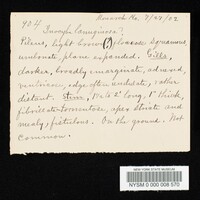 904
Monarch Ko. 7/28/02
Inocybe lanuginosa?
Pileus, light brown (?) floccose squamulose,
umbonate, plane expanded. Gills
darker, broadly emarginate, adnexed,
edge often undulate, rather
distant. Stem, 1½ to 2 long, thick,
fibrillose-tomentose, apex striate and
mealy, fistulous. On the ground. Not
common.
NEW YORK STATE MUSEUM
NYSM D 000 008 570